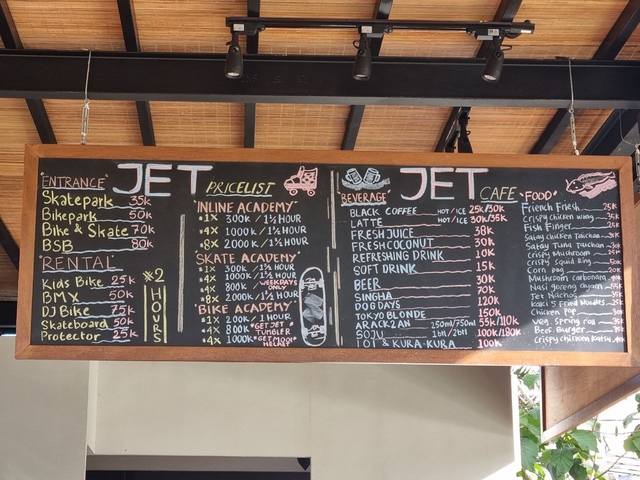 JET PRICELIST
"ENTRANCE"
Skatepark 35k
Bikepark 50k
Bike & Skate 70k
BSB 80k
"RENTAL"
Kids Bike 25k
BMX 50k
DJ Bike 75k
Skateboard 50k
Protector 25k
*2
HOURS
"INLINE ACADEMY"
*1X 300k / 1½ HOUR
*4X 1000k / 1½ HOUR
*8X 2000k / 1½ HOUR
"SKATE ACADEMY"
*1X 300k / 1½ HOUR
*4X 1000k / 1½ HOUR
*4X 800k WEEKDAYS ONLY
*8X 2000k / 1½ HOUR
"BIKE ACADEMY"
*1X 200k / 1 HOUR
*4X 800k "GET JET TUMBLER
*4X 1000k
JET CAFE
"BEVERAGE"
BLACK COFFEE HOT/ICE 25k/30k
LATTE HOT/ICE 30k/35k
FRESH JUICE 38k
FRESH COCONUT 30k
REFRESHING DRINK 10k
SOFT DRINK 15k
BEER 30k
SINGHA 30k
DOG DAYS 120k
TOKYO BLONDE 150k
ARACK 2AN 250ml/750ml 55k/110k
SOJU 1btl/2btl 100k/180k
IOI & KURA-KURA 100k
"FOOD"
Friench Friesh 25k
Crispy chicken wing 35k
Fish Finger 25k
Satay Chicken Taichan
Satay Tuna taichan
Crispy Mushroom
Crispy squid Ring
Corn pag 20k
Mushroom Carbonara
Nasi goreng ayam
Jet Nachos
Kaki 5 Fried Noodles
Chicken Pop
Veg. Spring roll
Beef Burger
Crispy chicken katsu